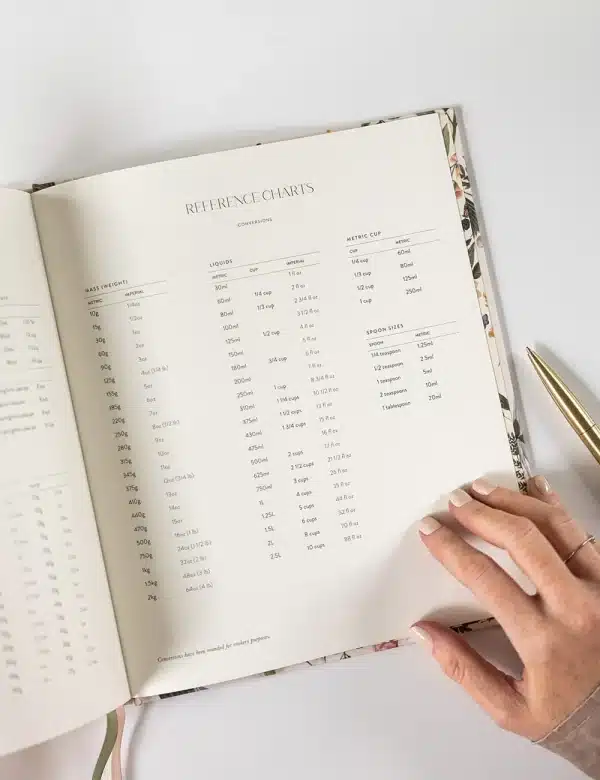 REFERENCE CHARTS
CONVERSIONS
MASS (WEIGHT)
METRIC IMPERIAL
10g 1/4oz
15g 1/2oz
30g 1oz
60g 2oz
90g 3oz
125g 4oz (1/4 lb)
155g 5oz
185g 6oz
220g 7oz
250g 8oz (1/2 lb)
280g 9oz
315g 10oz
345g 11oz
375g 12oz (3/4 lb)
410g 13oz
440g
470g 15oz
500g 16oz (1 lb)
750g 24oz (1 1/2 lb)
1kg 32oz (2 lb)
1.5kg 48oz (3 lb)
2kg 64oz (4 lb)
LIQUIDS
METRIC CUP IMPERIAL
30ml 1 fl oz
60ml 1/4 cup 2 fl oz
80ml 1/3 cup 2 3/4 fl oz
100ml 3 1/2 fl oz
125ml 1/2 cup 4 fl oz
150ml 5 fl oz
180ml 3/4 cup 6 fl oz
200ml fl oz
250ml 1 cup 8 3/4 fl oz
310ml 1 1/4 cups 10 1/2 fl oz
375ml 1 1/2 cups 13 fl oz
430ml 1 3/4 cups 15 fl oz
475ml 16 fl oz
500ml 2 cups 17 fl oz
625ml 2 1/2 cups 21 1/2 fl oz
750ml 3 cups 26 fl oz
1L 4 cups 35 fl oz
1.25L 5 cups 44 fl oz
1.5L 6 cups 52 fl oz
2L 8 cups 70 fl oz
2.5L 10 cups 88 fl oz
METRIC CUP
CUP METRIC
1/4 cup 60ml
1/3 cup 80ml
1/2 cup 125ml
1 cup 250ml
SPOON SIZES
SPOON METRIC
1/4 teaspoon 1.25ml
1/2 teaspoon 2.5ml
1 teaspoon 5ml
2 teaspoons 10ml
1 tablespoon 20ml
Conversions have been rounded for cookery purposes.